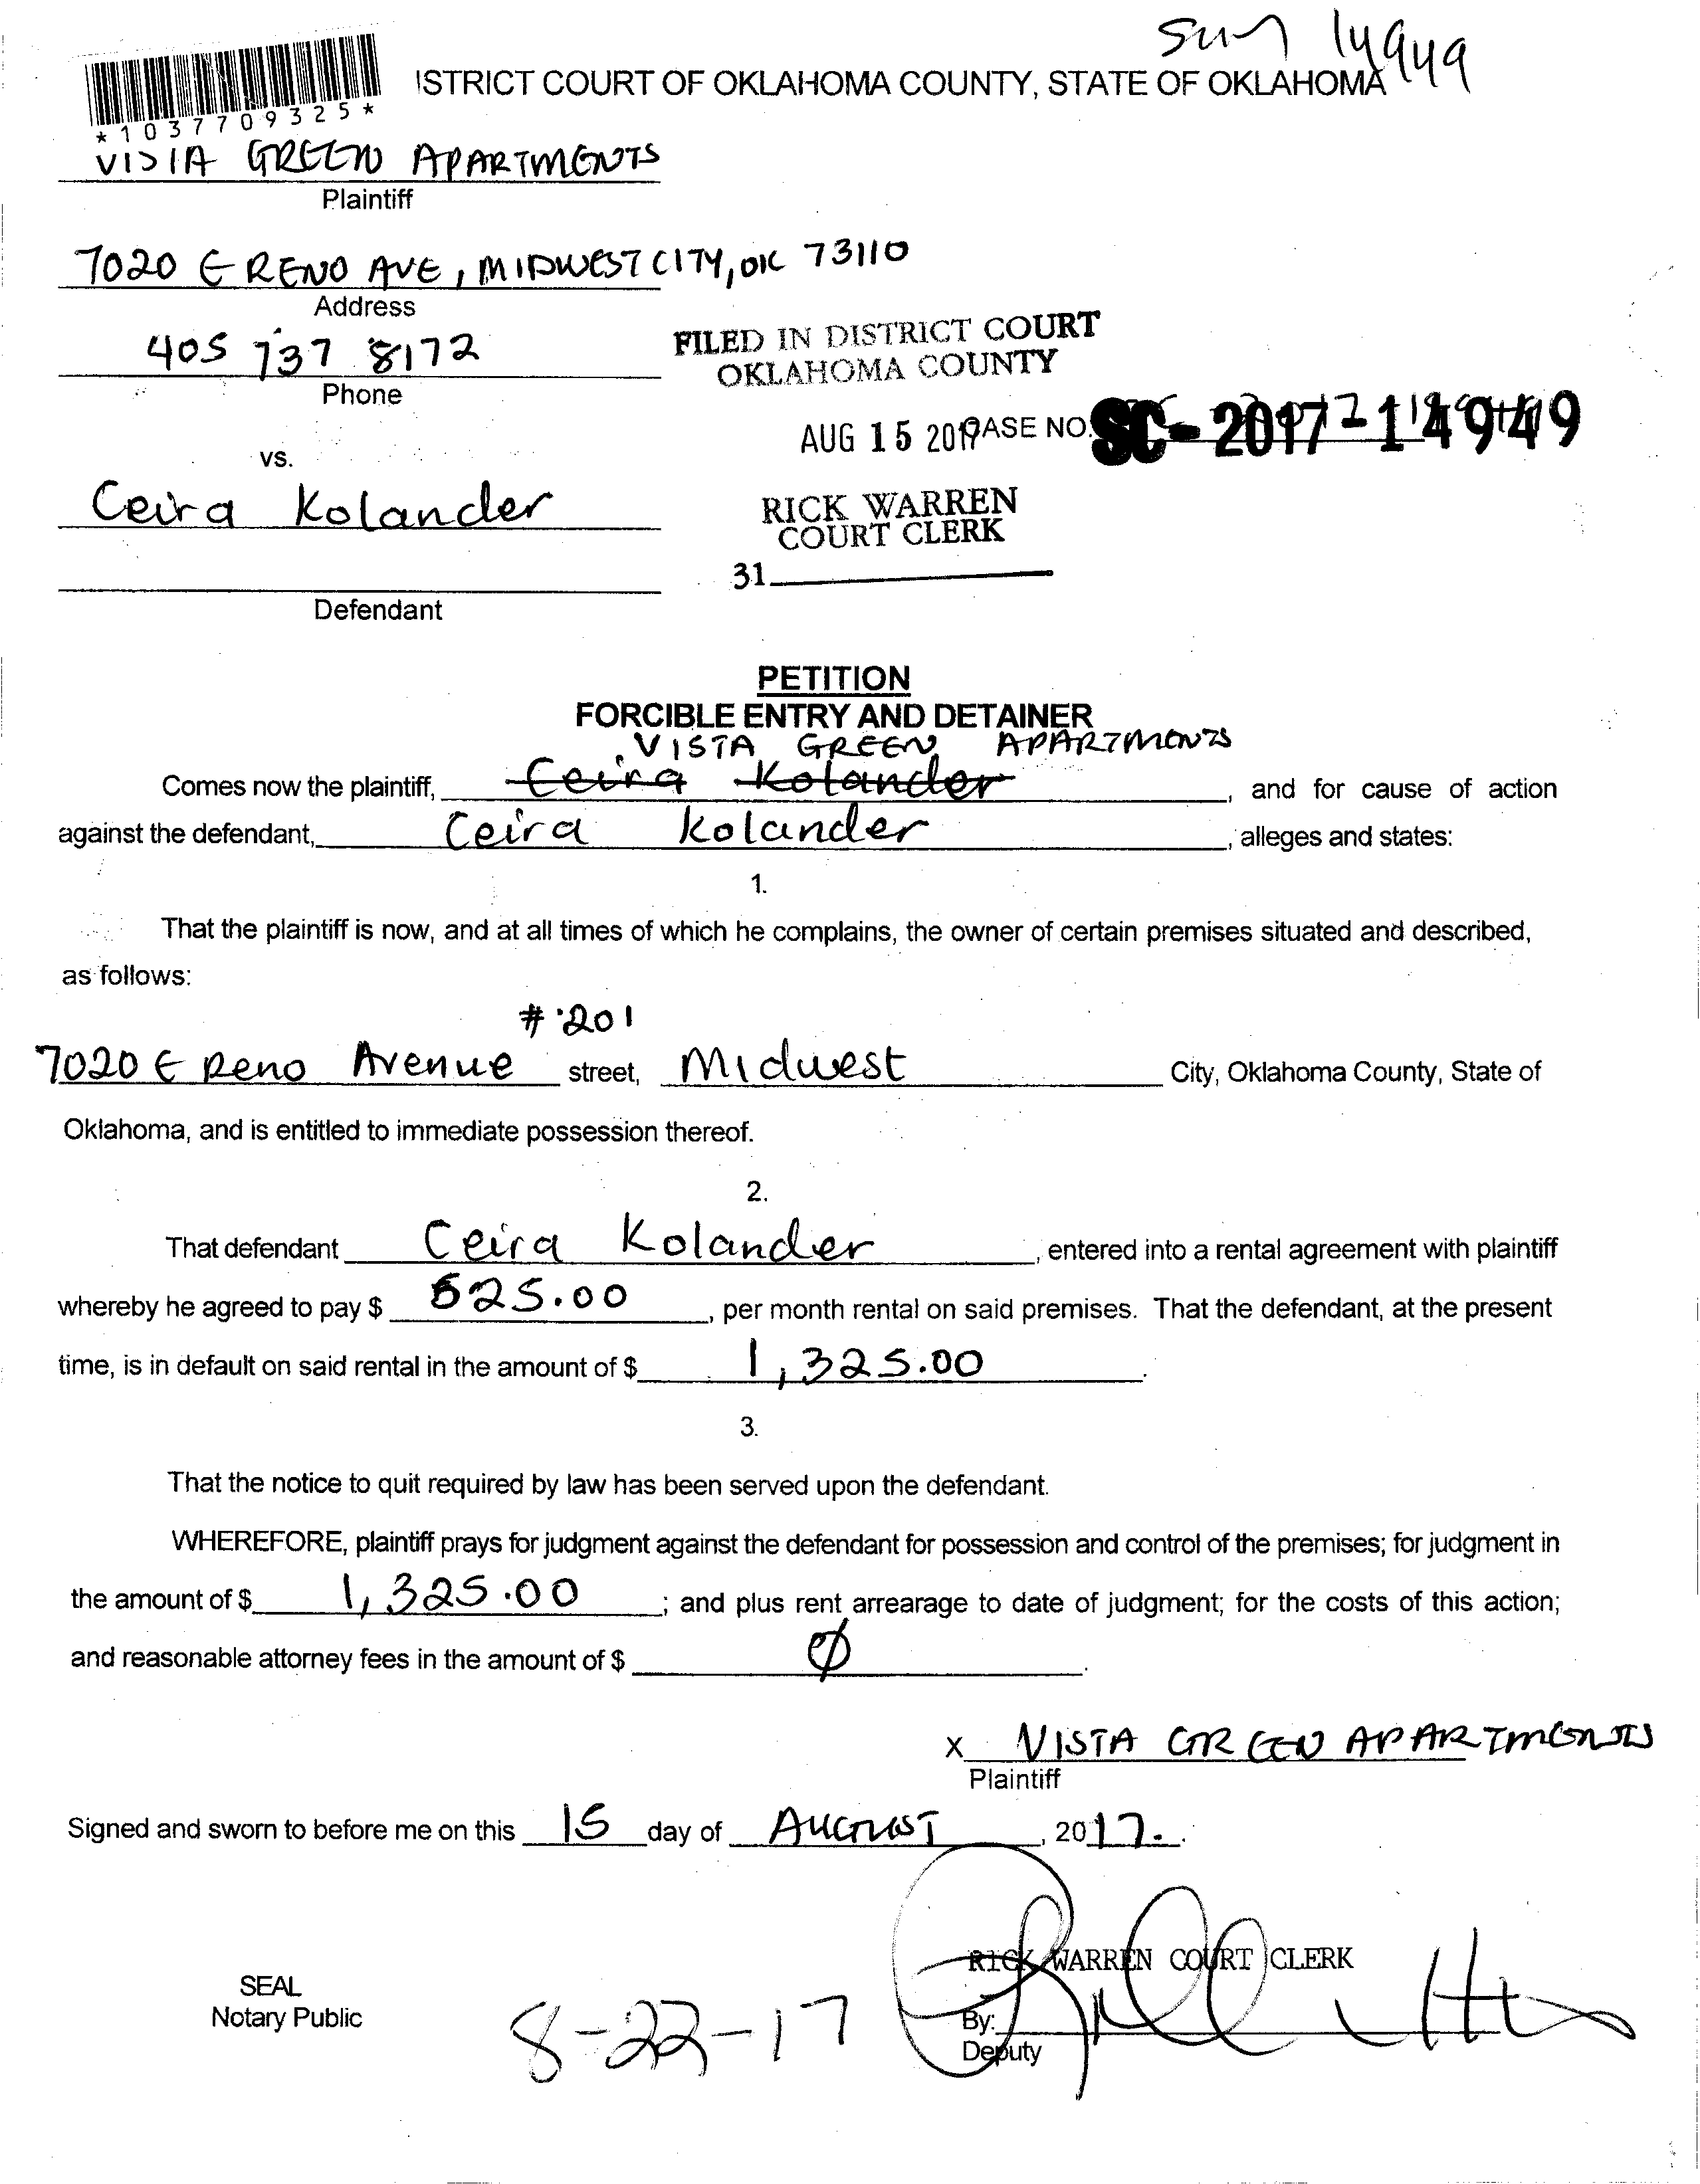 Sum 14949
ISTRICT COURT OF OKLAHOMA COUNTY, STATE OF OKLAHOMA
*1037709325*
VISTA GREEN APARTMENTS
Plaintiff
7020 E RENO AVE, MIDWEST CITY, OK 73110
Address
405 737 8172
Phone
FILED IN DISTRICT COURT
OKLAHOMA COUNTY
AUG 15 2017
CASE NO. SC-2017-14949
vs.
Ceira Kolander
RICK WARREN
COURT CLERK
31
Defendant
PETITION
FORCIBLE ENTRY AND DETAINER
VISTA GREEN APARTMENTS
Comes now the plaintiff, Ceira Kolander, and for cause of action
against the defendant, Ceira Kolander, alleges and states:
1.
That the plaintiff is now, and at all times of which he complains, the owner of certain premises situated and described,
as follows:
#201
7020 E Reno Avenue street, Midwest City, Oklahoma County, State of
Oklahoma, and is entitled to immediate possession thereof.
2.
That defendant Ceira Kolander, entered into a rental agreement with plaintiff
whereby he agreed to pay $ 525.00, per month rental on said premises. That the defendant, at the present
time, is in default on said rental in the amount of $ 1,325.00.
3.
That the notice to quit required by law has been served upon the defendant.
WHEREFORE, plaintiff prays for judgment against the defendant for possession and control of the premises; for judgment in
the amount of $ 1,325.00; and plus rent arrearage to date of judgment; for the costs of this action;
and reasonable attorney fees in the amount of $ Ø.
x VISTA GREEN APARTMENTS
Plaintiff
Signed and sworn to before me on this 15 day of AUGUST, 2017.
RICK WARREN COURT CLERK
SEAL
Notary Public
8-22-17
By:
Deputy